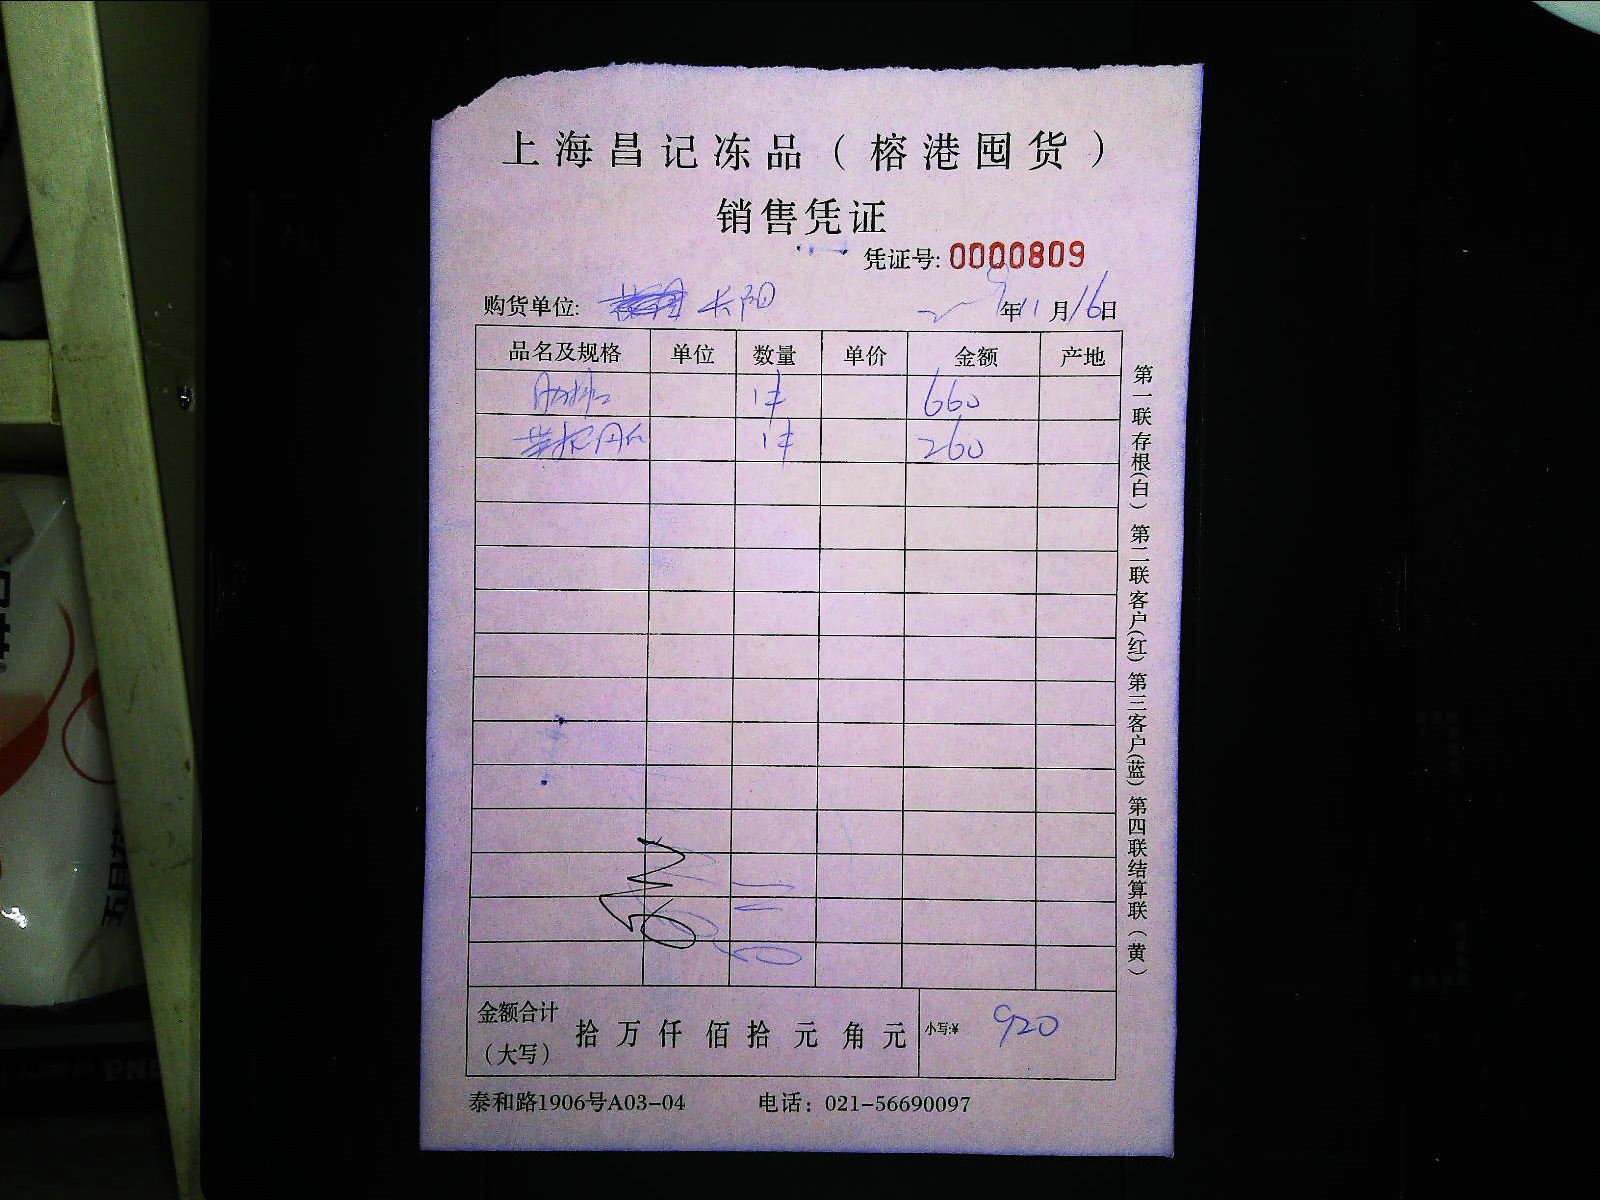 上海昌记冻品（榕港囤货）
销售凭证
凭证号: 0000809
购货单位: 长阳 年11月16日
品名及规格 单位 数量 单价 金额 产地
肋排 1件 660
1件 260
金额合计（大写） 拾 万 仟 佰 拾 元 角 元 小写:¥ 920
泰和路1906号A03-04 电话：021-56690097
第一联存根(白) 第二联客户(红) 第三客户(蓝) 第四联结算联（黄）